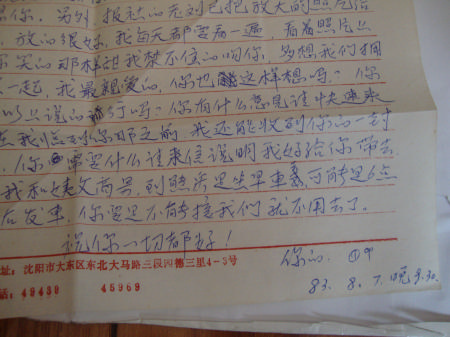 你。另外 报社的老刘已把放大的照片给
放的很好,我每天都要看一遍,看着照片上
笑的那样甜我禁不住的吻你,多想我们拥
一起,我最亲爱的,你也这样想吗?你
以上说的都行吗?你有什么意见请快速来
在我临到你那之前 我还能收到你的一封
你需要什么请来信说明我好给你带去。
我和 商 到 是坐早车 可能是6点
后发车,你要是不能接我们就不用去了。
祝你一切都好!
你的
83. 8. 7. 晚9.30.
址:沈阳市大东区东北大马路三段四德三里4-3号
话:49480 45969